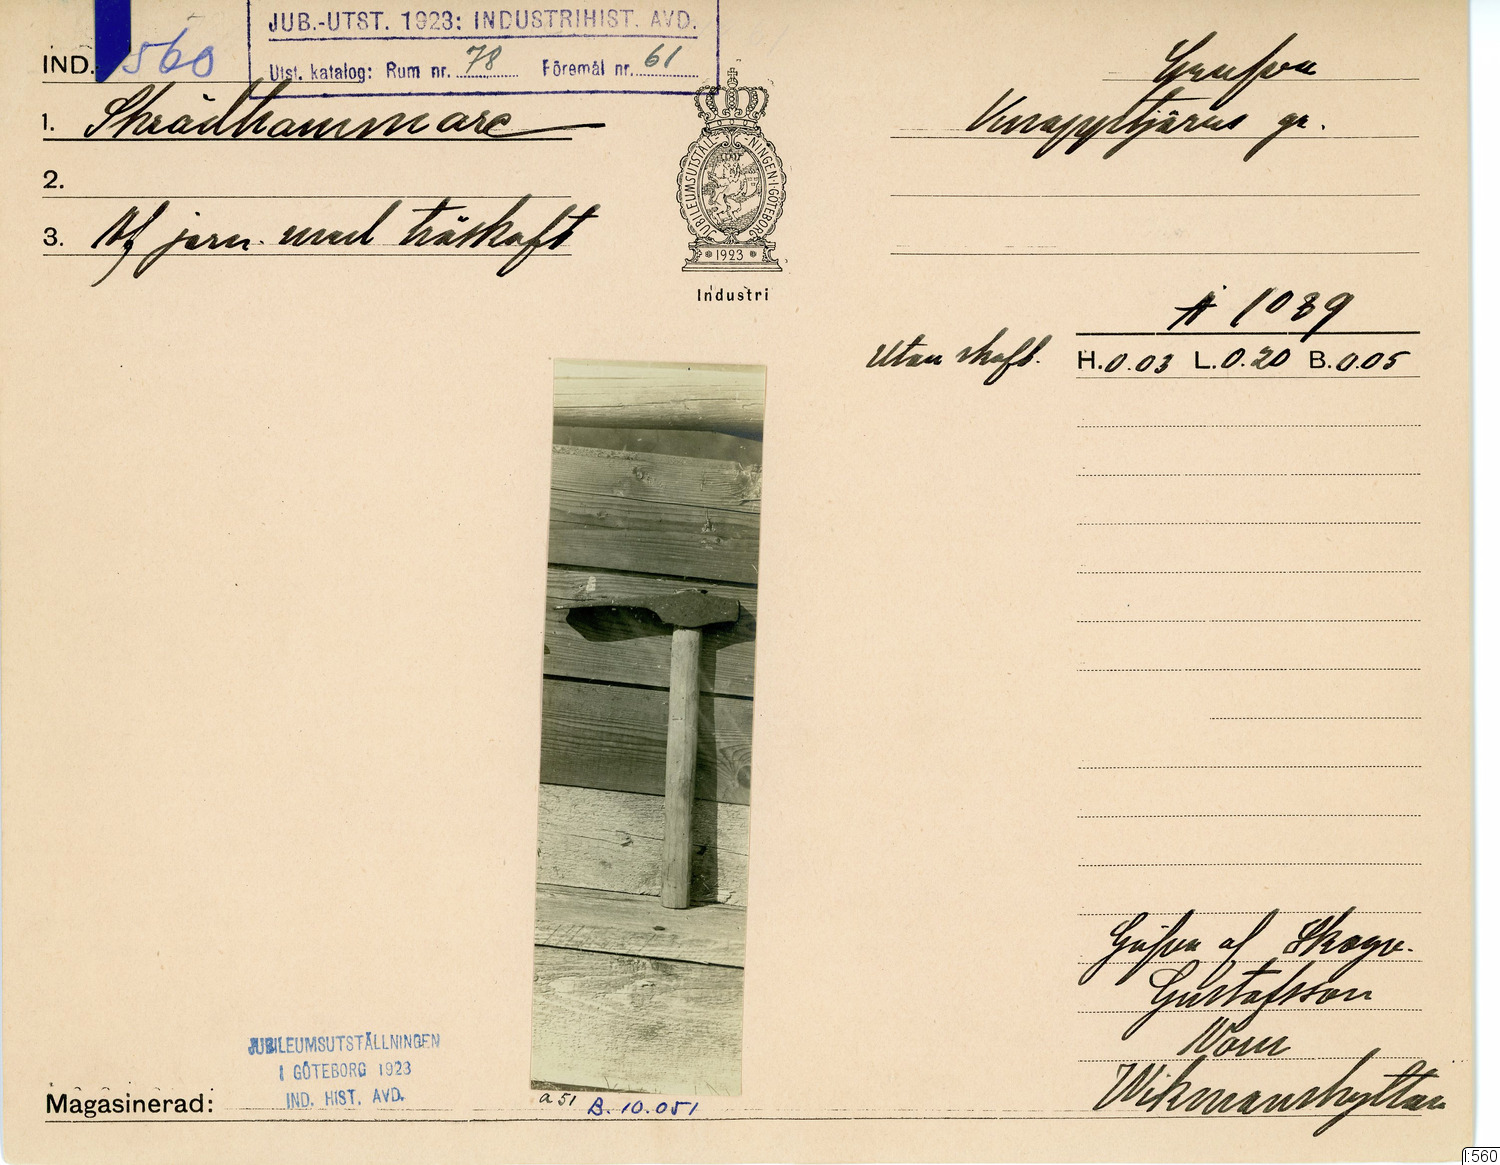 JUB.-UTST. 1923: INDUSTRIHIST. AVD.
Utst. katalog: Rum nr. 78 Föremål nr. 61
IND. 560
1. Skrädhammare
2.
3. Af järn med träskaft
JUBILEUMSUTSTÄLLNINGEN · I · GÖTEBORG
1923
Industri
gr.
A 1089
Utan skaft. H. 0.03 L. 0.20 B. 0.05
Gåfva af Skogv.
Gustafsson
Wikmanshyttan
JUBILEUMSUTSTÄLLNINGEN
I GÖTEBORG 1923
IND. HIST. AVD.
Magasinerad:
a 51 B. 10.051
I:560